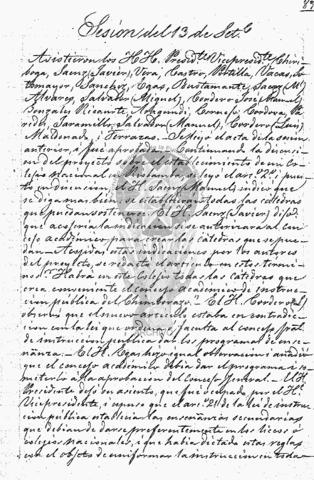 89
Sesion del 13 de Setbe
Asistieron los H.H. Presidte Vicepresidte Chiri-
boga, Saenz (Javier), Vera, Castro, Portilla, Vacas, So-
tomayor, Sanchez, Egas, Bustamante, Saenz (Ml)
Alvarez, Salvador (Miguel), Cordero José Manuel
Gonzales, Ricaurte, Arizaga, Cornejo, Cordova, Pa-
redes, Jaramillo, Salvador (Manuel), Cordero (Luis)
Maldonado, i Terrazas. Se leyó el acta de la sesion
anterior, i fué aprobada. Continuando la discusion
del proyecto sobre el establecimiento de un Co-
lejio nacional en Riobamba, se leyó el art. 2º i puesto
en discusion, el H. Saenz (Manuel) indicó que
se diga mas bien: se establecerán todas las cátedras
que puedan sostenerse. El H. Saenz (Javier) dijo
que acojeria la indicacion si se autorizara al con-
sejo académico para crear las cátedras que se pue-
dan. Acojidas estas indicaciones por los autores
del proyecto, se redactó el artículo en estos térmi-
nos: "Habrá en este Colejio todas las cátedras que
crea conveniente el consejo académico de instruc-
cion pública del Chimborazo." El H. Cordero (L)
observó que el nuevo artículo estaba en contradic-
cion con la lei que faculta al consejo jral.
de instruccion publica dar los programas de ense-
ñanza. El H. Egas hizo igual observacion i añadió
que el consejo academico debia dar el programa i so-
meterlo a la aprobacion del Consejo Jeneral. El H.
Presidente dejó su asiento, que fué ocupado por el H.
Vicepresidente, i espuso que el art. 21 de la lei de instruc-
cion pública establecia las enseñanzas secundarias
que debian de darse preferentemente en los liceos o
colejios nacionales, i que habia dictado estas reglas
con el objeto de uniformar la instruccion en toda